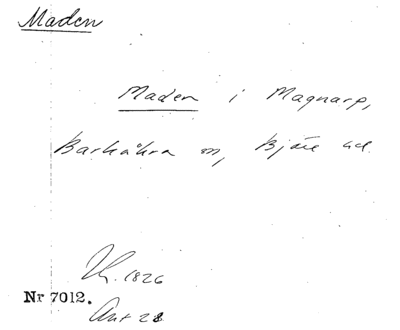 Maden
Maden i Magnarp,
Barkåkra sn, Bjäre hd.
1826
Nr 7012.
Ant 28